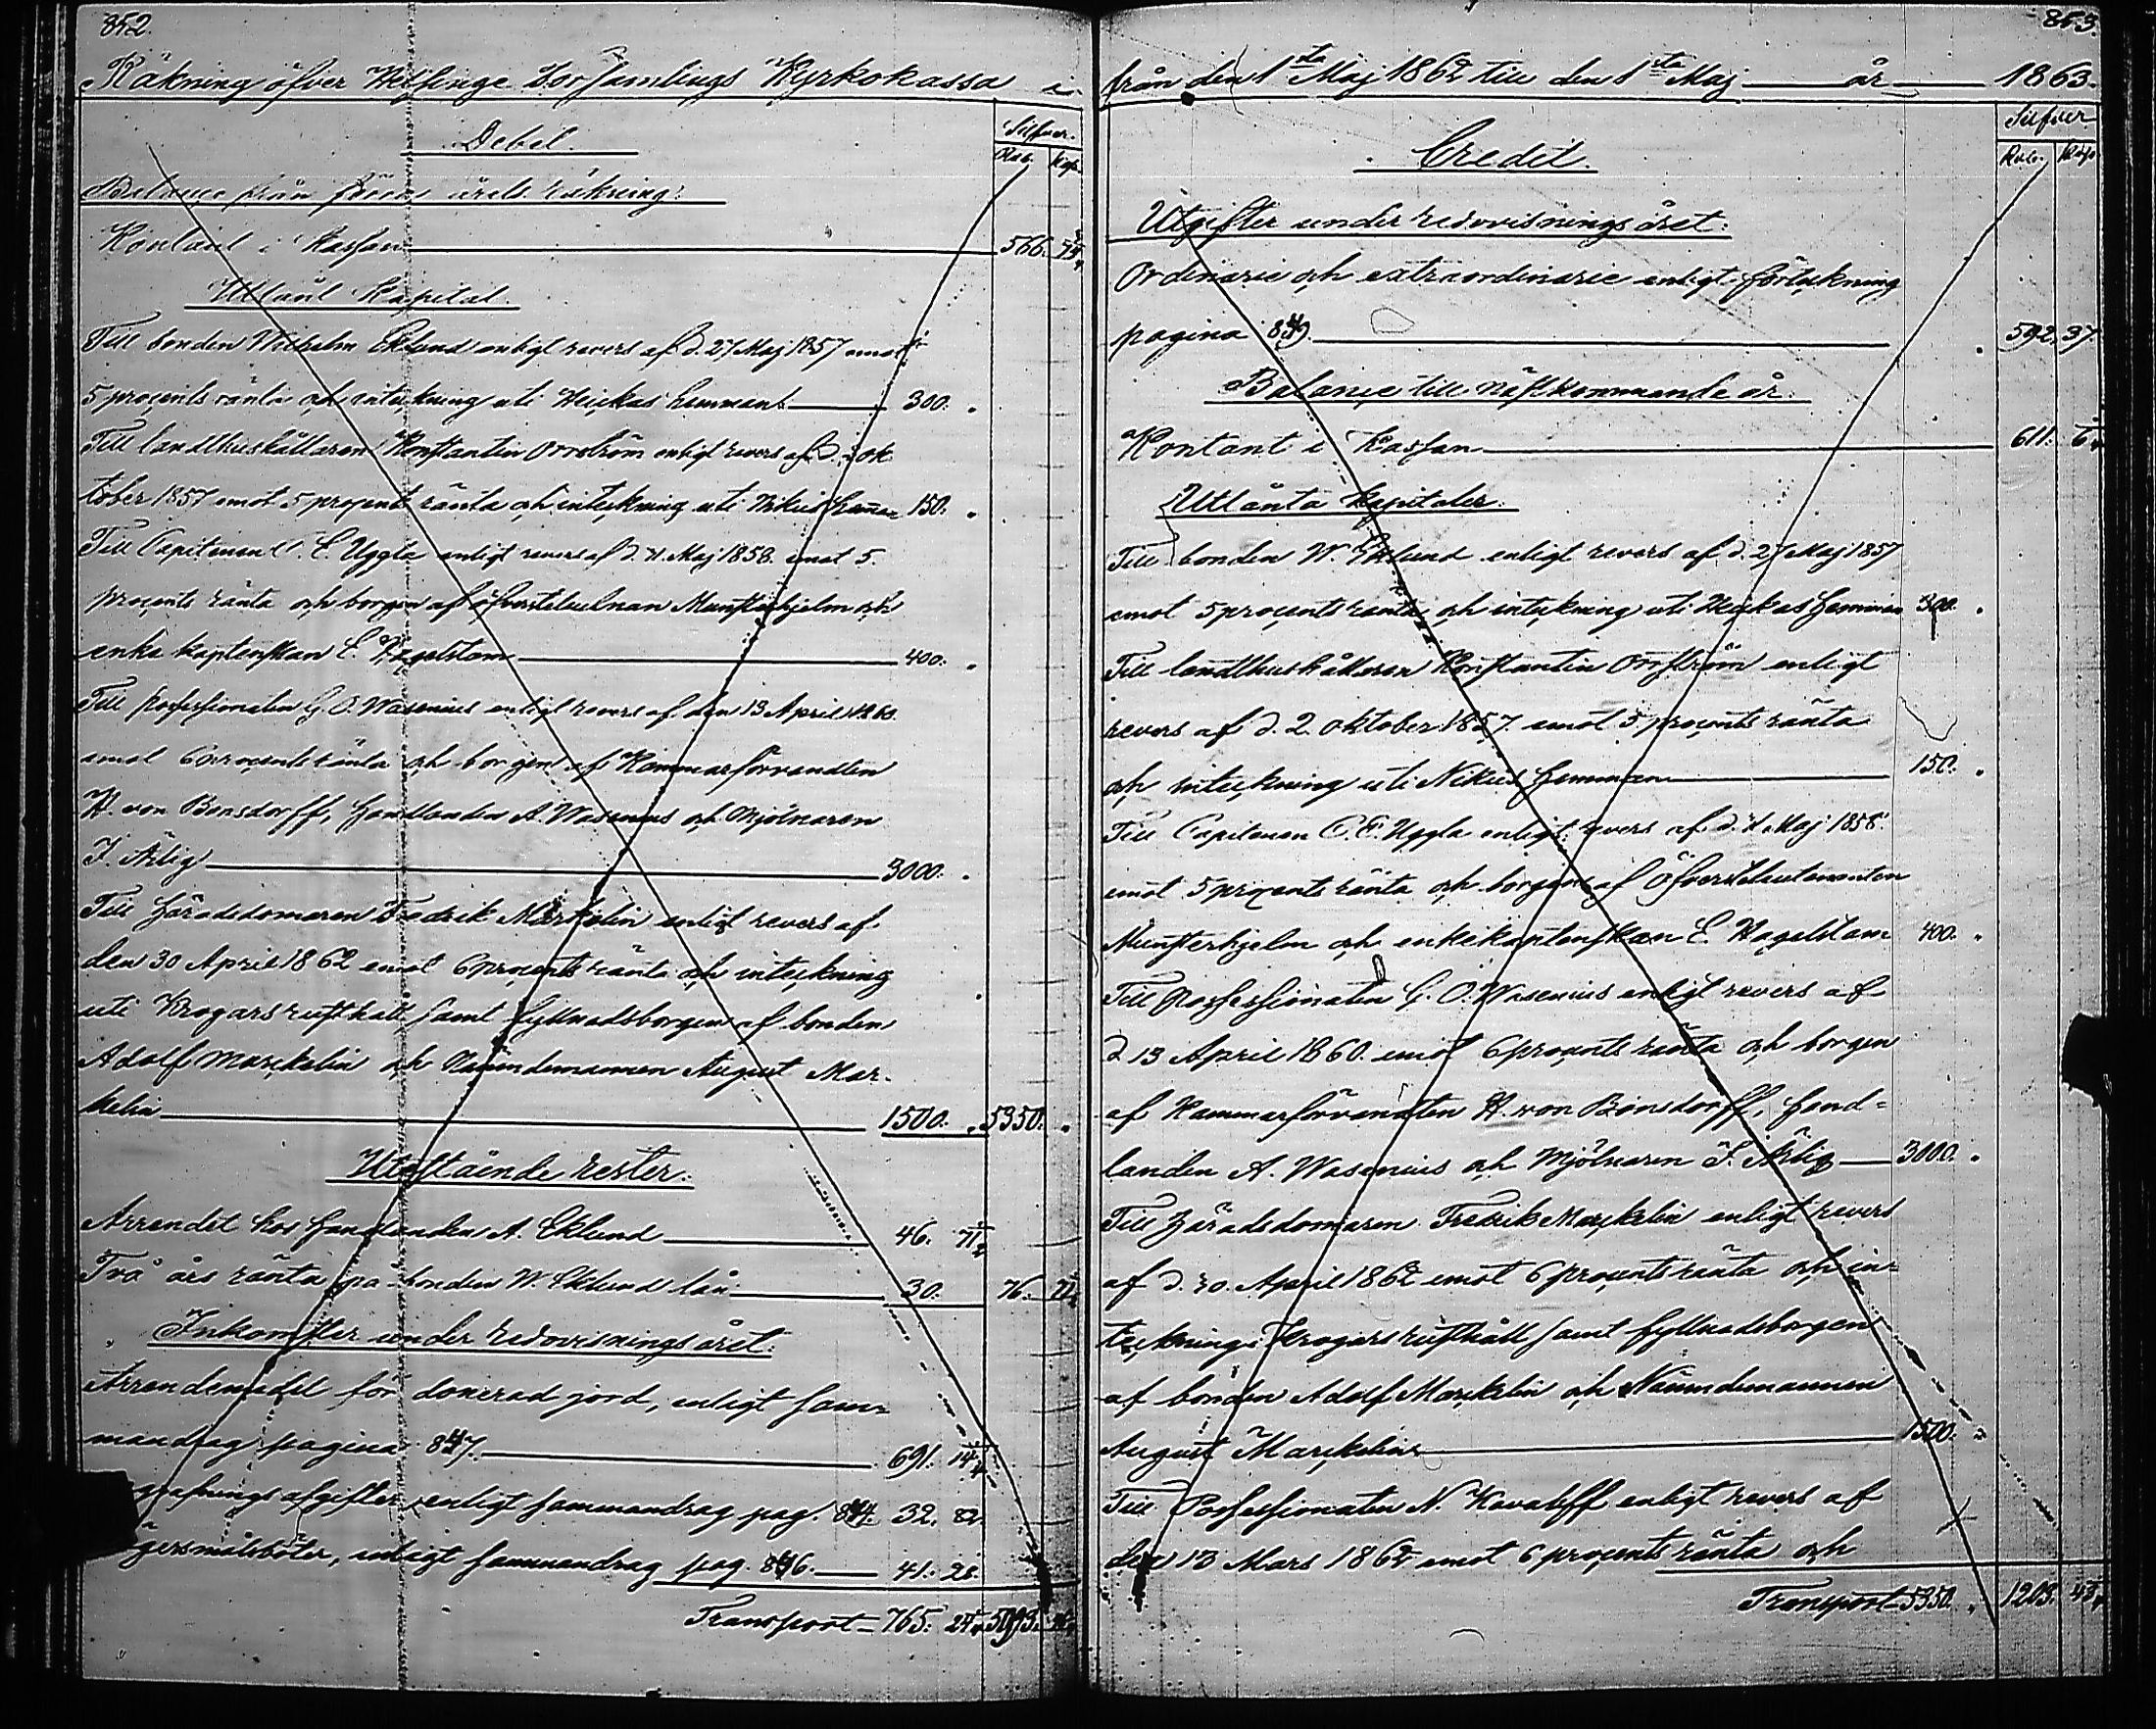 852.
Räkning öfver Helsinge Församlings Kyrkokassa
Debet.
Silfver.
Rub. Kop.
Balance från förra årets räkning:
Kontant i Kassan 566.
Utlånt Kapital
Till bonden Wilhelm Eklund enligt revers af d. 27 Maj 1857 emot
5 procents ränta och inteckning uti Heickas hemmant 300.
Till landthushållaren Konstantin Orrström enligt revers af d. 2 ok
tober 1857 emot 5 procents ränta och inteckning uti Nikus 150.
Till Capitenen C. E. Uggla enligt revers af d. 4 Maj 1858. emot 5.
procents ränta och borgen af öfverstelieutnan Munsterhjelm och
enke kaptenskan E. Hagelstam 400.
Till Possessionaten G. O. Wasenius enligt revers af den 13 April 1860.
emot 6 procents ränta och borgen af Kammarförvandten
H. von Bonsdorff, Handlanden A. Wasenius och Mjölnaren
J. Ärlig 3000.
Till Häradsdomaren Fredrik Marckelin enligt revers af
den 30 April 1862 emot 6 procents ränta och inteckning
uti Krogars rusthåll samt fyllnadsborgen af bonden
Adolf Marckelin och Nämndemannen August Mar-
kelin 1500. 5350.
Utestående rester:
Arrendet hos Handlanden A. Eklund 46. 71
Två års ränta på bonden W. Eklunds lån 30. 76. 71
Inkomster under redovisningsåret:
Arrendemedel för donerad jord, enligt Sam-
mandrag pagina 847. 691. 14
grafnings afgifter enligt Sammandrag pag. 844. 32. 82.
ägersmålsböter, enligt Sammandrag pag. 846. 41. 28.
Transport 765. 24
853.
från den 1sta Maj 1862 till den 1sta Maj år 1863.
Silfver.
Rub. Kop.
Credit.
Utgifter under redovisningsåret:
Ordinarie och extraordinarie enligt förteckning
pagina 849. 592. 37.
Balance till nästkommande år.
Kontant i Kassan 611. 6
Utlånta Kapitaler.
Till bonden W. Eklund enligt revers af d. 27 Maj 1857
emot 5 procents ränta och inteckning uti Heickas Hemman 300.
Till landthushållaren Konstantin Orrström enligt
revers af d. 2. Oktober 1857. emot 5 procents ränta
och inteckning uti Nikus Hemman 150.
Till Capitenen C. E. Uggla enligt revers af d. 4 Maj 1858.
emot 5 procents ränta och borgen af Öfverstelieutenanten
Munsterhjelm och enkekaptenskan E. Hagelstam 400.
Till Possessionaten G. O. Wasenius enligt revers af
d 13 April 1860. emot 6 procents ränta och borgen
af Kammarförvandten H. von Bonsdorff, Hand-
landen A. Wasenius och Mjölnaren J. Ärlig 3000.
Till Häradsdomaren Fredrik Marckelin enligt revers
af d. 30. April 1862 emot 6 procents ränta och in-
teckning i Krogars rusthåll samt fyllnadsborgen
af bonden Adolf Marckelin och Nämndemannen
August Marckelin 1500.
Till Possessionaten N. Kavaleff enligt revers af
den 13 Mars 1862 emot 6 procents ränta och
Transport 5350. 1203. 43